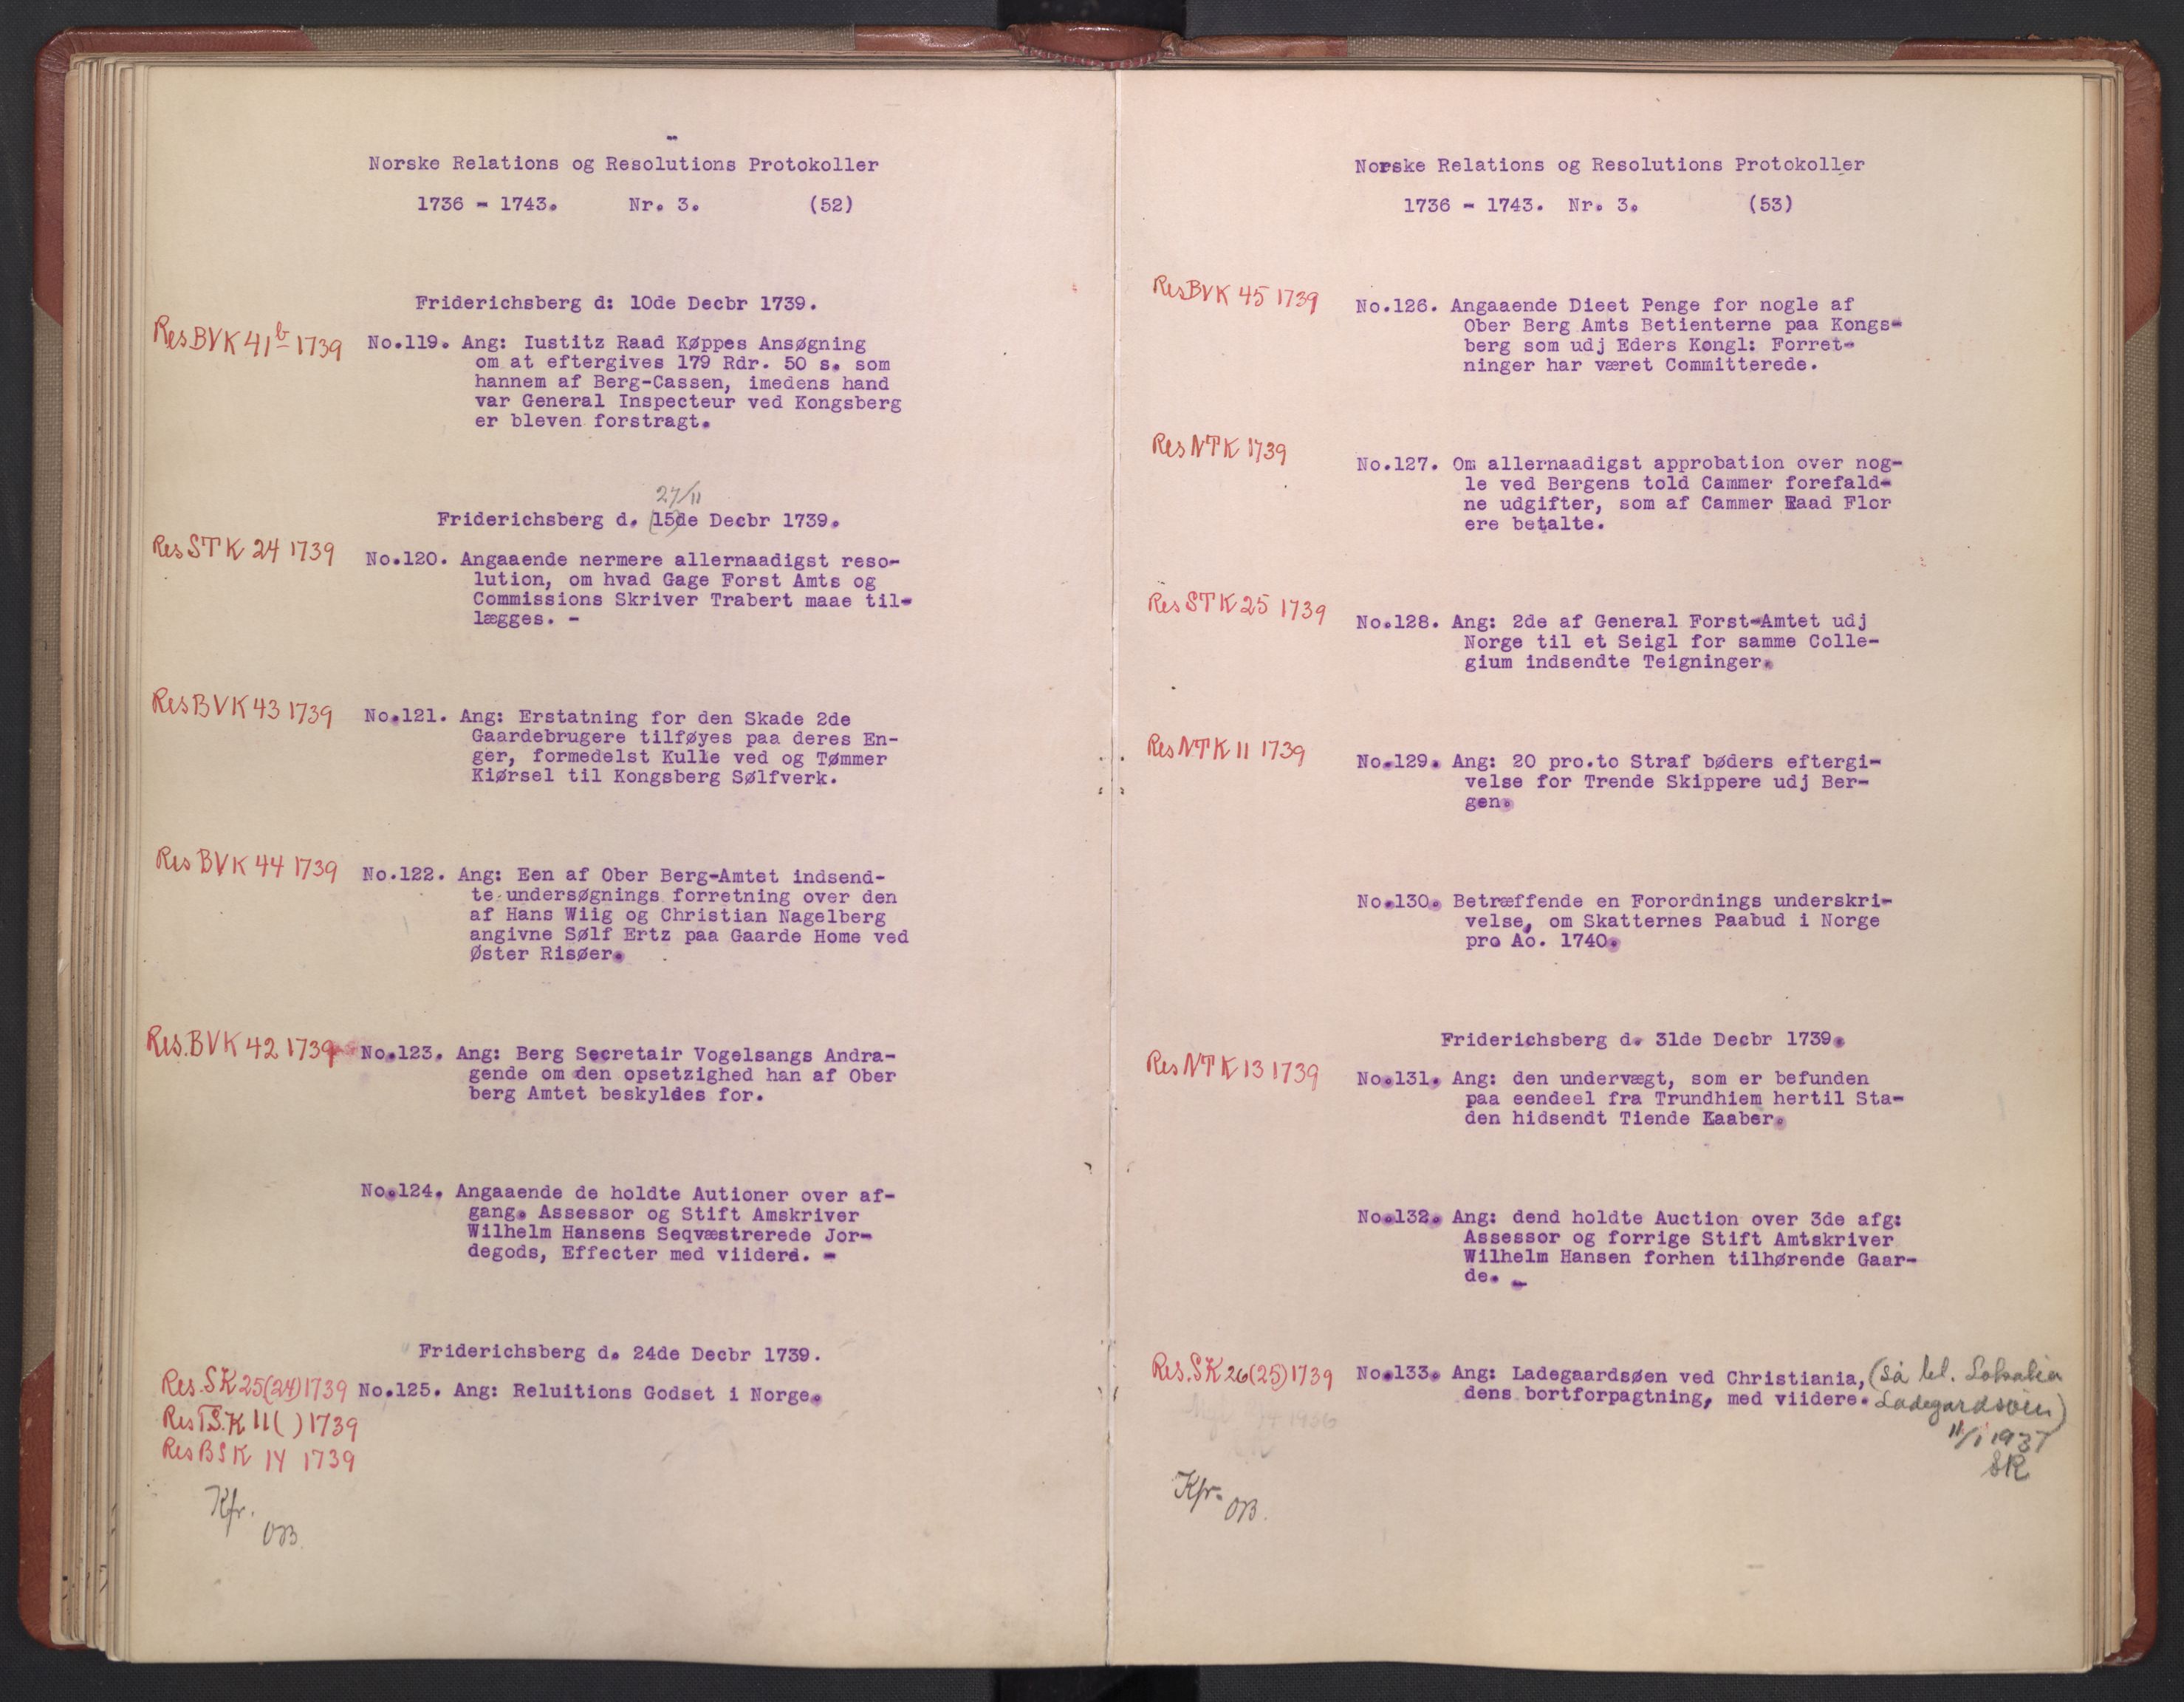 Norske Relations og Resolutions Protokoller
1736 - 1743. Nr. 3. (52)
Friderichsberg d: 10de Decbr 1739.
Res BVK 41 b 1739
No.119. Ang: Iustitz Raad Køppes Ansøgning
om at eftergives 179 Rdr. 50 s. som
hannem af Berg-Cassen, imedens hand
var General Inspecteur ved Kongsberg
er bleven forstragt.
27/11
Friderichsberg d. (15)de Decbr 1739.
Res STK 24 1739
No.120. Angaaende nermere allernaadigst reso-
lution, om hvad Gage Forst Amts og
Commissions Skriver Trabert maae til-
lægges. -
Res BVK 43 1739
No.121. Ang: Erstatning for den Skade 2de
Gaardebrugere tilføyes paa deres En-
ger, formedelst Kulle ved og Tømmer
Kiørsel til Kongsberg Sølfverk.
Res BVK 44 1739
No.122. Ang: Een af Ober Berg-Amtet indsend-
te undersøgnings forretning over den
af Hans Wiig og Christian Nagelberg
angivne Sølf Ertz paa Gaarde Home ved
Øster Risøer.
Res. BVK 42 1739
No.123. Ang: Berg Secretair Vogelsangs Andra-
gende om den opsetzighed han af Ober
berg Amtet beskyldes for.
No.124. Angaaende de holdte Autioner over af-
gang. Assessor og Stift Amskriver
Wilhelm Hansens Seqvæstrerede Jor-
degods, Effecter med viidere. -
Friderichsberg d. 24de Decbr 1739.
Res. SK 25(24) 1739
No.125. Ang: Reluitions Godset i Norge.
Res TS.K 11( ) 1739
Res BSK 14 1739
Kfr.
OB.
Norske Relations og Resolutions Protokoller
1736 - 1743. Nr. 3. (53)
Res BVK 45 1739
No.126. Angaaende Dieet Penge for nogle af
Ober Berg Amts Betienterne paa Kongs-
berg som udj Eders Kongl: Forret-
ninger har været Committerede.
Res NTK 1739
No.127. Om allernaadigst approbation over nog-
le ved Bergens told Cammer forefald-
ne udgifter, som af Cammer Raad Flor
ere betalte.
Res STK 25 1739
No.128. Ang: 2de af General Forst-Amtet udj
Norge til et Seigl for samme Colle-
gium indsendte Teigninger.
Res NTK 11 1739
No.129. Ang: 20 pro.to Straf bøders eftergi-
velse for Trende Skippere udj Ber-
gen.
No.130. Betræffende en Forordnings underskri-
velse, om Skatternes Paabud i Norge
pro Ao. 1740.
Friderichsberg d. 31de Decbr 1739.
Res NTK 13 1739
No.131. Ang: den undervægt, som er befunden
paa eendeel fra Trundhiem hertil Sta-
den hidsendt Tiende Kaaber.
No.132. Ang: dend holdte Auction over 3de afg:
Assessor og forrige Stift Amtskriver
Wilhelm Hansen forhen tilhørende Gaar-
de. -
Res. SK 26(25) 1739
No.133. Ang: Ladegaardsøen ved Christiania, (Så
dens bortforpagtning, med viidere. Ladegardsöen)
11/1 1937
SR
Kfr.
OB.